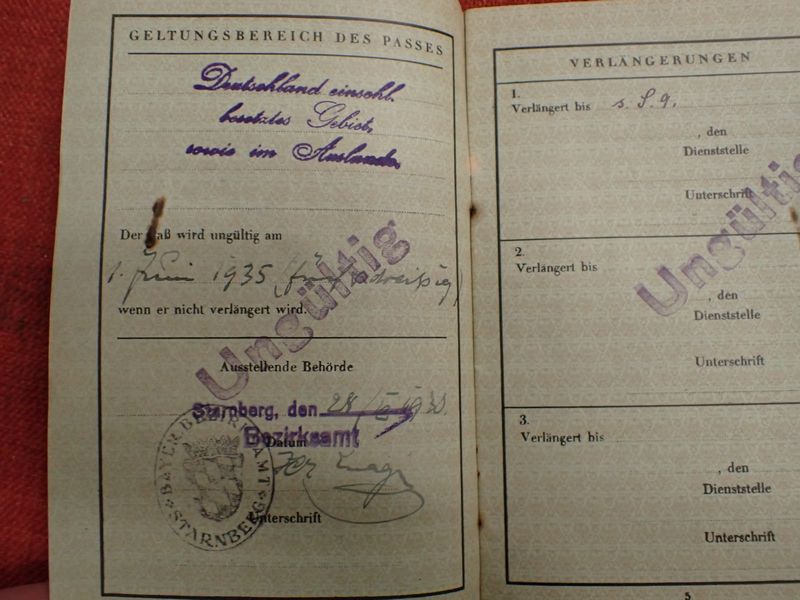 GELTUNGSBEREICH DES PASSES
Deutschland einschl.
besetztes Gebiet,
sowie im Auslande.
Der Paß wird ungültig am
1. Juni 1935 (fünfunddreißig)
wenn er nicht verlängert wird.
Ungültig
Ausstellende Behörde
Starnberg, den 28/
Bezirksamt
Datum
BAYER. BEZIRKSAMT
STARNBERG
Unterschrift
VERLÄNGERUNGEN
1.
Verlängert bis s. S. 9.
, den
Dienststelle
Unterschrift
Ungültig
2.
Verlängert bis
, den
Dienststelle
Unterschrift
3.
Verlängert bis
, den
Dienststelle
Unterschrift
5